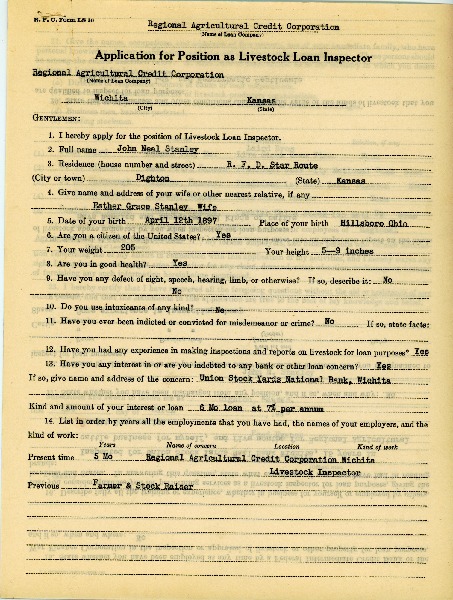 R. F. C. Form LS 10
Regional Agricultural Credit Corporation
(Name of Loan Company)
Application for Position as Livestock Loan Inspector
Regional Agricultural Credit Corporation
(Name of Loan Company)
Wichita Kansas
(City) (State)
GENTLEMEN:
1. I hereby apply for the position of Livestock Loan Inspector.
2. Full name John Neal Stanley
3. Residence (house number and street) R. F. D. Star Route
(City or town) Dighton (State) Kansas
4. Give name and address of your wife or other nearest relative, if any
Esther Grace Stanley Wife
5. Date of your birth April 12th 1897 Place of your birth Hillsboro Ohio
6. Are you a citizen of the United States? Yes
7. Your weight 205 Your height 5-9 inches
8. Are you in good health? Yes
9. Have you any defect of sight, speech, hearing, limb, or otherwise? If so, describe it: No
No
10. Do you use intoxicants of any kind? No
11. Have you ever been indicted or convicted for misdemeanor or crime? No If so, state facts:
12. Have you had any experience in making inspections and reports on livestock for loan purposes? Yes
13. Have you any interest in or are you indebted to any bank or other loan concern? Yes
If so, give name and address of the concern: Union Stock Yards National Bank, Wichita
Kind and amount of your interest or loan 6 Mo Loan at 7% per annum
14. List in order by years all the employments that you have had, the names of your employers, and the
kind of work:
Years Name of concern Location Kind of work
Present time 5 Mo Regional Agricultural Credit Corporation Wichita
Livestock Inspector
Previous Farmer & Stock Raiser